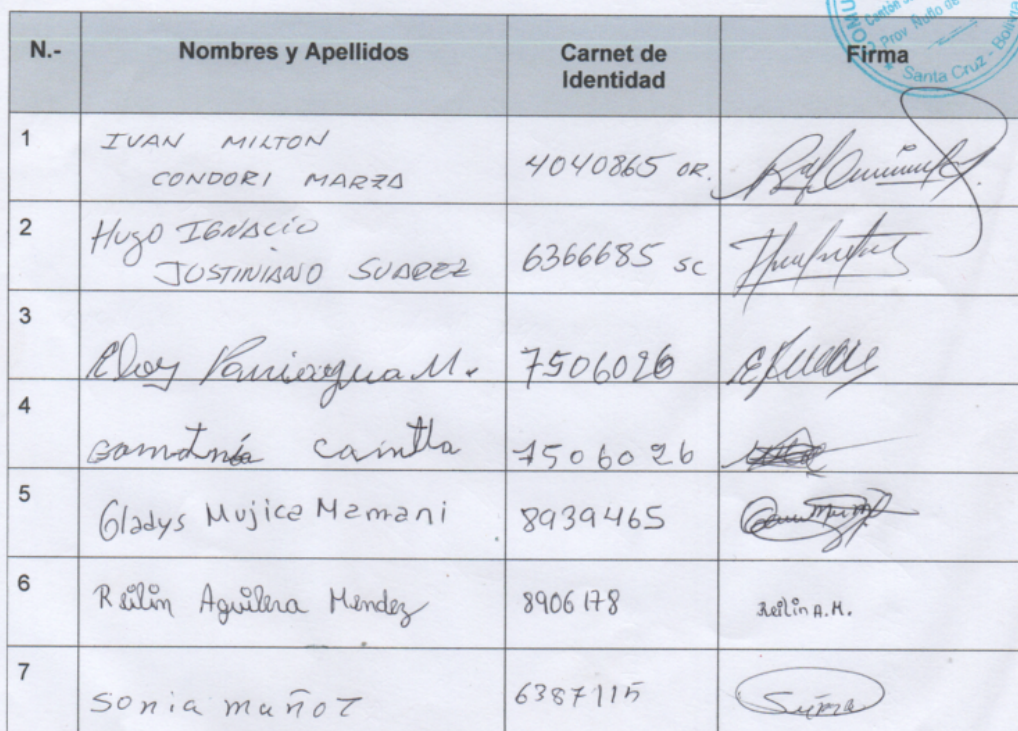 COMU
Cantón
Prov Ñuflo de
Santa Cruz - Bolivia
N.- Nombres y Apellidos Carnet de Identidad Firma
1 IVAN MILTON
CONDORI MARZA 4040865 OR.
2 Hugo IGNACIO
JUSTINIANO SUAREZ 6366685 SC
3 Eloy Paniagua M. 7506026
4 7506026
5 Gladys Mujica Mamani 8939465
6 Reilin Aguilera Mendez 8906178 Reilin A.M.
7 Sonia muñoz 6387115